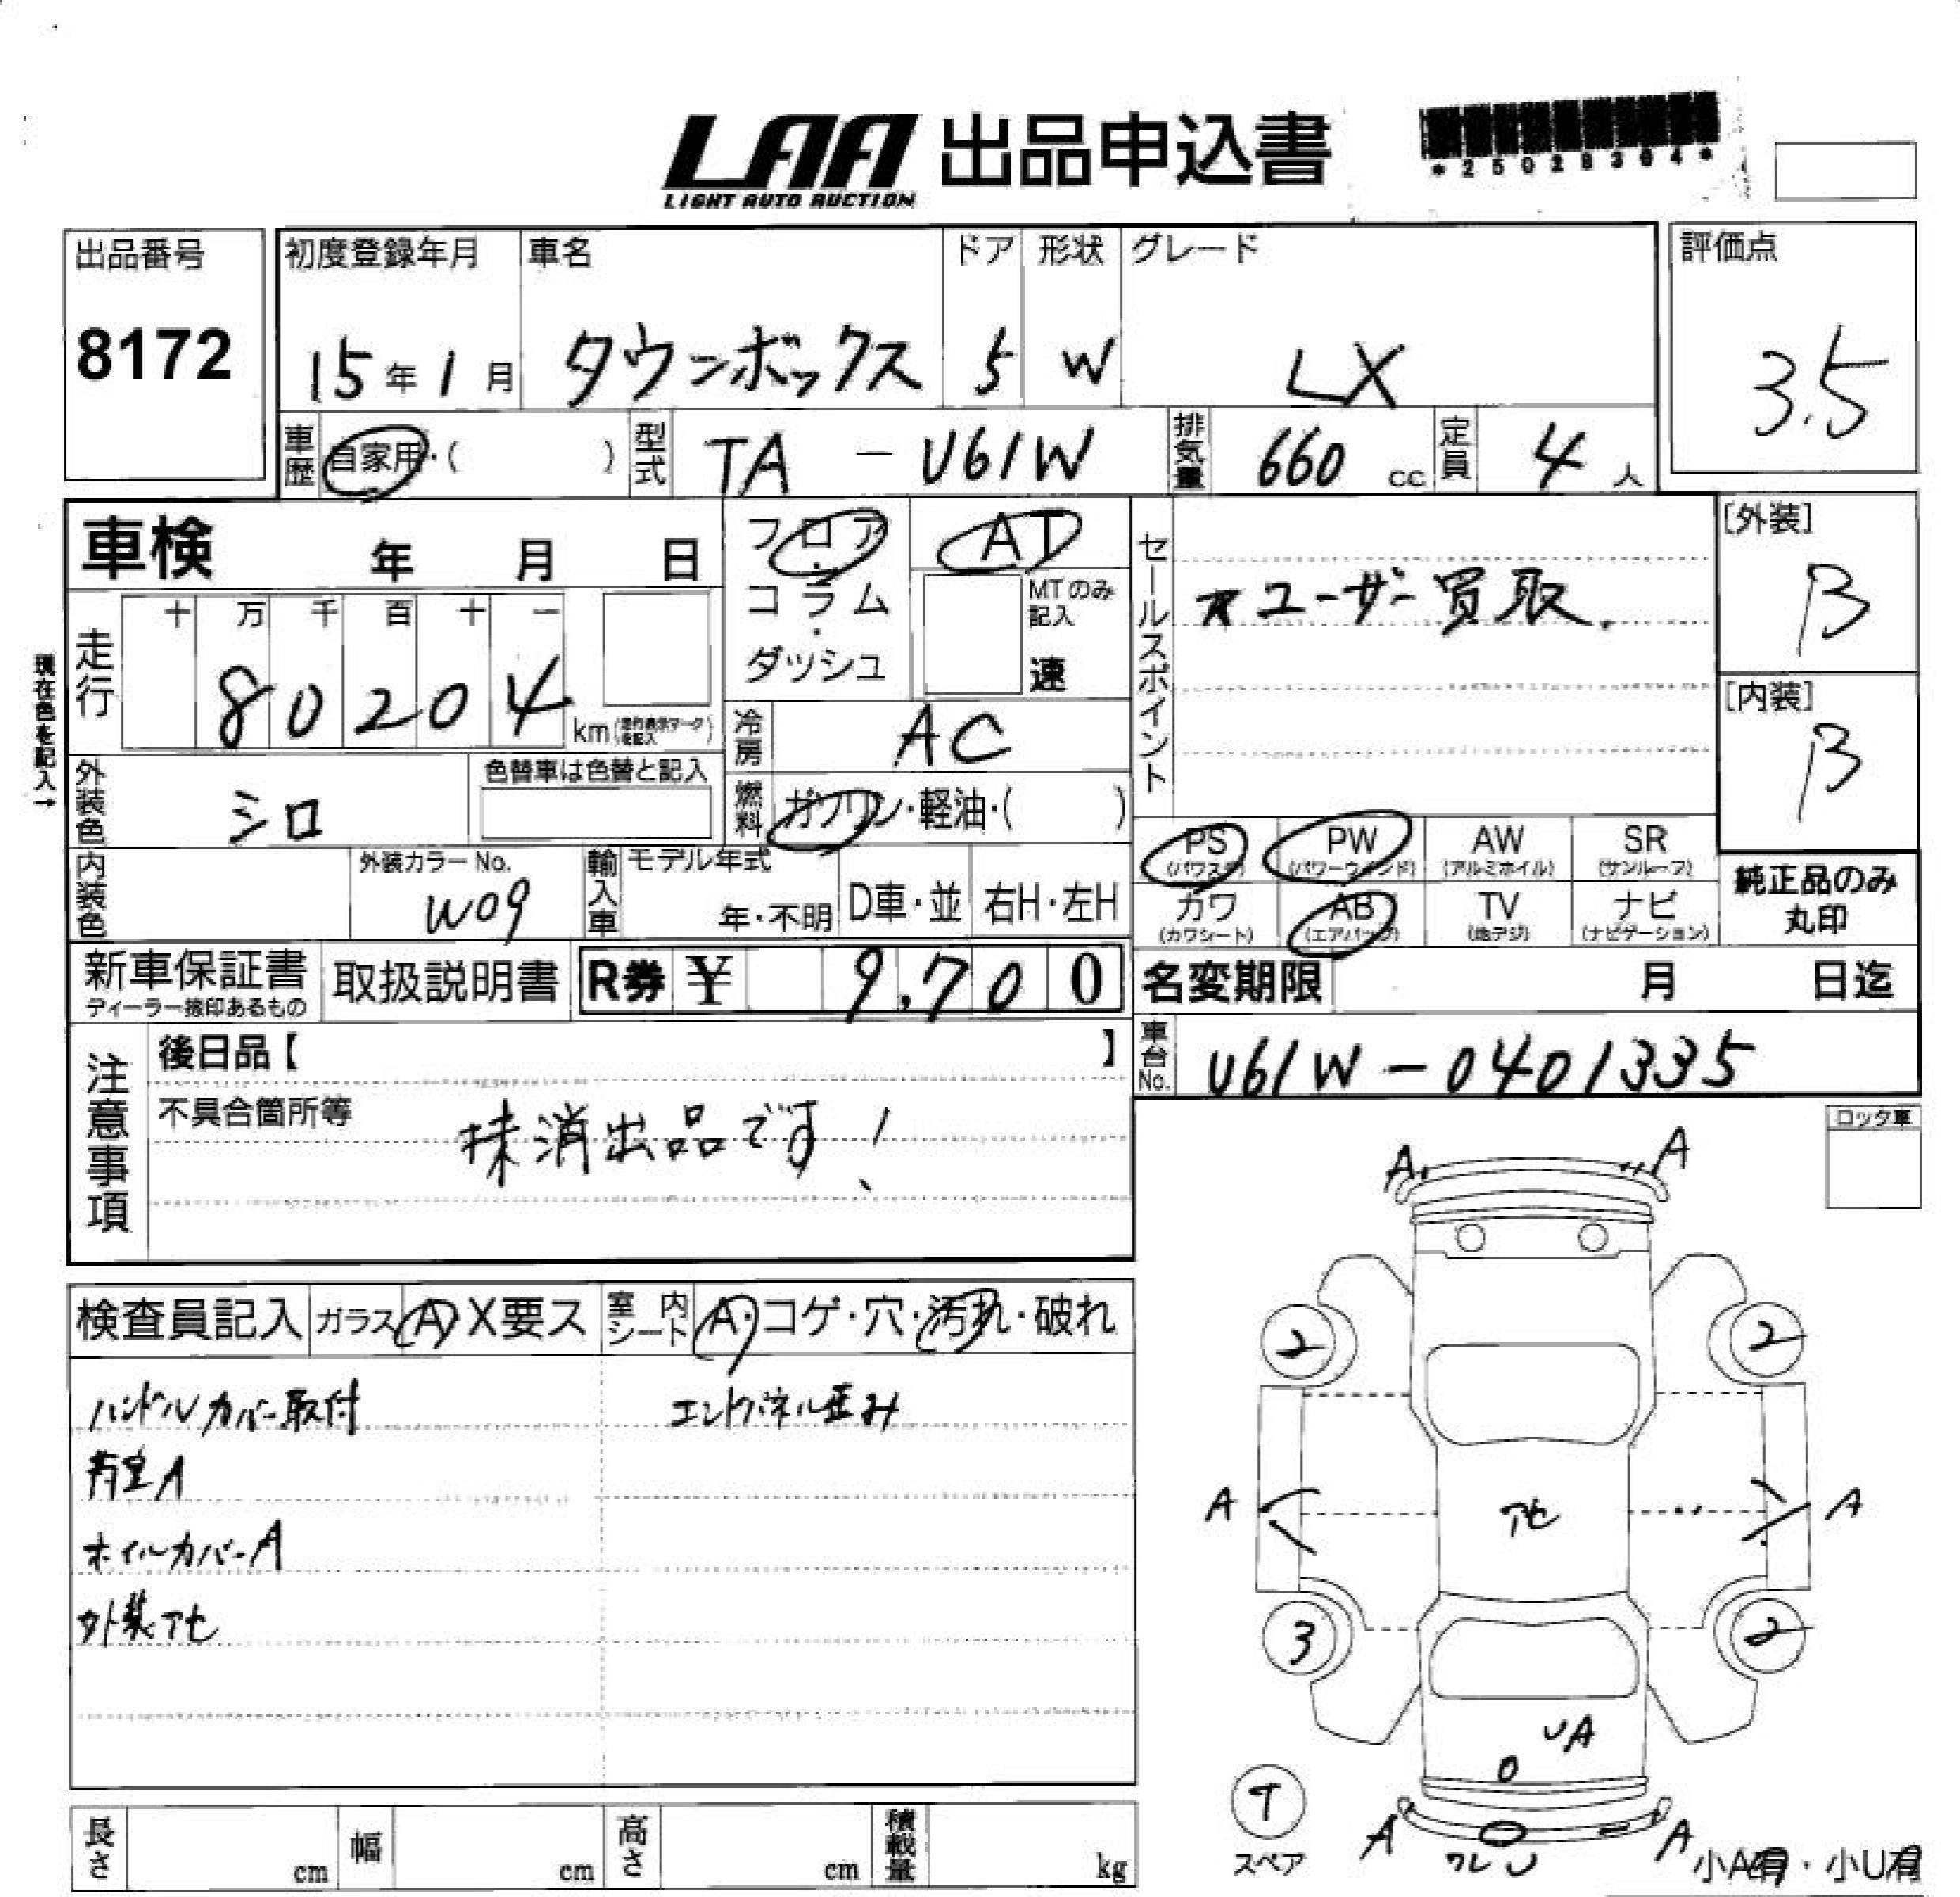 LAA 出品申込書
LIGHT AUTO AUCTION
*25028304*
出品番号
8172
初度登録年月 車名 ドア 形状 グレード
15年1月 タウンボックス 5 W LX
評価点
3.5
車歴 自家用・( ) 型式 TA - U61W 排気量 660 cc 定員 4 人
車検 年 月 日
フロア・コラム・ダッシュ
AT
MTのみ記入
速
セールスポイント
★ユーザー買取.
[外装]
B
[内装]
B
現在色を記入→
走行 十 万 千 百 十 一
80204 km
冷房 AC
外装色 シロ 色替車は色替と記入
燃料 ガソリン・軽油・( )
PS PW AW SR
(パワステ) (パワーウインド) (アルミホイル) (サンルーフ)
カワ AB TV ナビ
(カワシート) (エアバッグ) (地デジ) (ナビゲーション)
純正品のみ
丸印
内装色 外装カラーNo. W09
輸入車 モデル年式 年・不明 D車・並 右H・左H
新車保証書 取扱説明書 R券 ¥ 9,700
ディーラー捺印あるもの
名変期限 月 日迄
車台No. U61W-0401335
注意事項
後日品【 】
不具合箇所等
抹消出品です!
ロック車
検査員記入 ガラス A X要ス 室内シート A・コゲ・穴・汚れ・破れ
ハンドルカバー取付 エンドパネル歪み
荷室A
ホイルカバーA
外装アセ
A A
2 2
A アセ A
3 2
UA
O
T
スペア
A A
ワレ U
小A有・小U有
長さ cm 幅 cm 高さ cm 積載量 kg